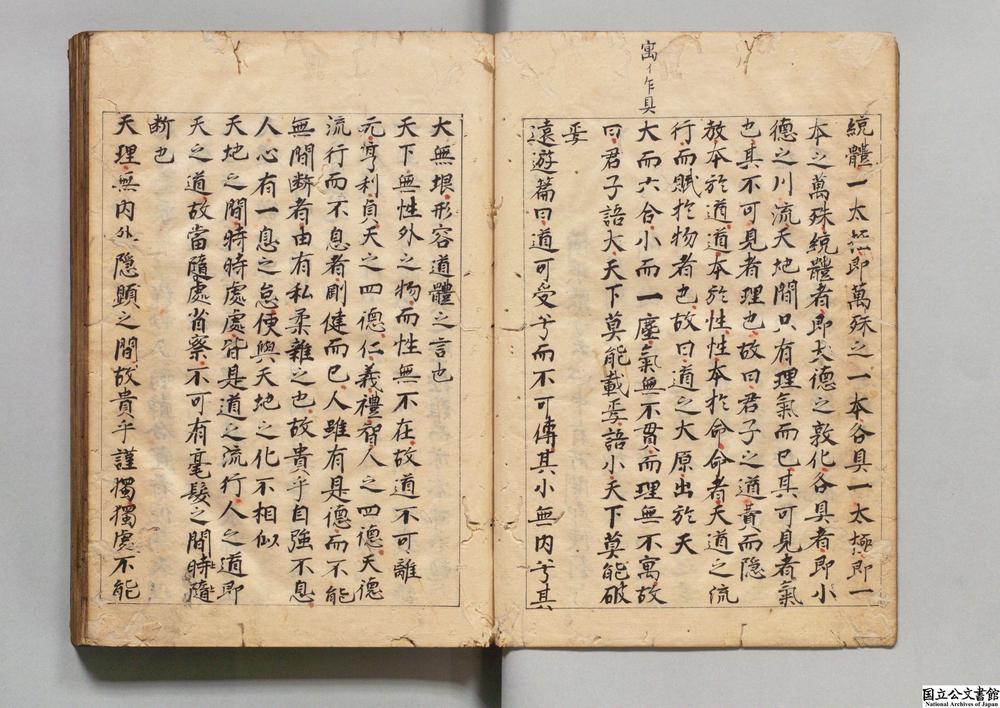 寓イ乍具
統體一太極即萬殊之一本各具一太極即一
本之萬殊統體者即大德之敦化各具者即小
德之川流天地間只有理氣而已其可見者氣
也其不可見者理也故曰君子之道費而隱
教本於道道本於性性本於命命者天道之流
行而賦於物者也故曰道之大原出於天
大而六合小而一塵氣無不貫而理無不寓故
曰君子語大天下莫能載焉語小天下莫能破
焉
遠遊篇曰道可受兮而不可傳其小無內兮其
大無垠形容道體之言也
天下無性外之物而性無不在故道不可離
元亨利貞天之四德仁義禮智人之四德天德
流行而不息者剛健而已人雖有是德而不能
無間斷者由有私柔雜之也故貴乎自強不息
人心有一息之怠便與天地之化不相似
天地之間時時處處皆是道之流行人之道即
天之道故當隨處省察不可有毫髮之間時隨
断也
天理無內外隱顯之間故貴乎謹獨獨處不能
国立公文書館
National Archives of Japan